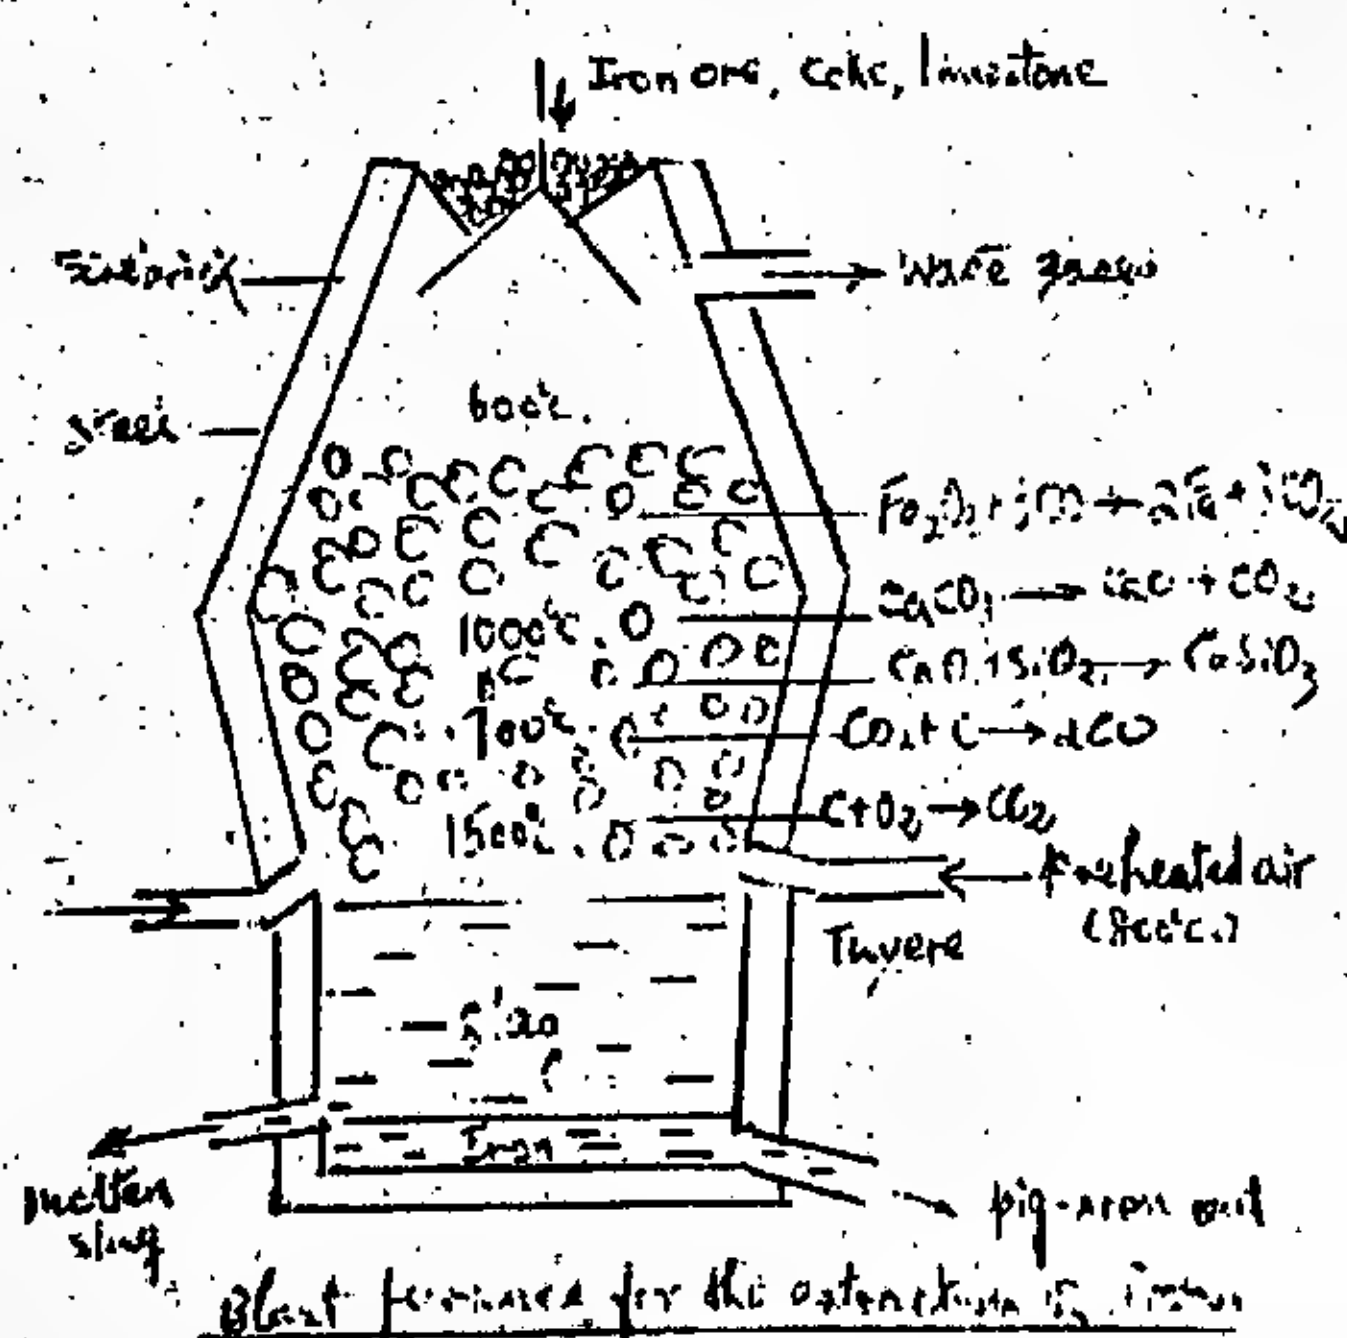 Iron ore, Coke, limestone
Firebrick
Waste gases
600°c.
steel
Fe₂O₃ + 3CO → 2Fe + 3CO₂
CaCO₃ → CaO + CO₂
1000°c.
CaO + SiO₂ → CaSiO₃
CO₂ + C → 2CO
C + O₂ → CO₂
1500°c.
Preheated air
Tuyere
Slag
Iron
molten
slag
pig-iron out
Blast furnace for the extraction of